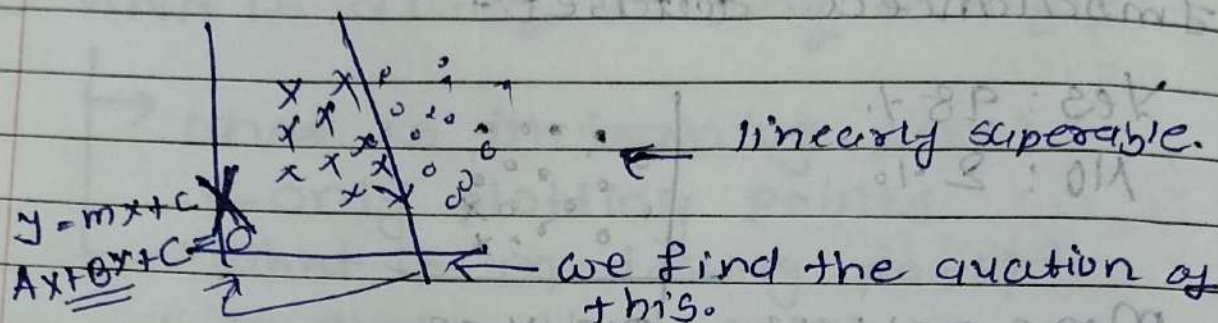 linearly superable.
y = mx + c
Ax + By + C = 0
we find the quation of
this.